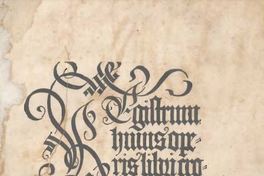 Registrum
huius ope-
ris libri cro-